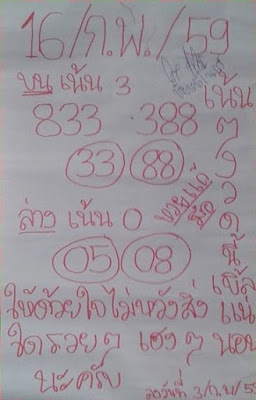 16/ก.พ./59
บน เน้น 3
833 388
33 88
ล่าง เน้น 0
05 08
ให้ด้วยใจไม่หวังสิ่ง
ใด รวยๆ เฮงๆ
นะครับ
เน้นๆ งวดนี้ เบิ้ล
ลงวันที่ 3/ก.พ/5